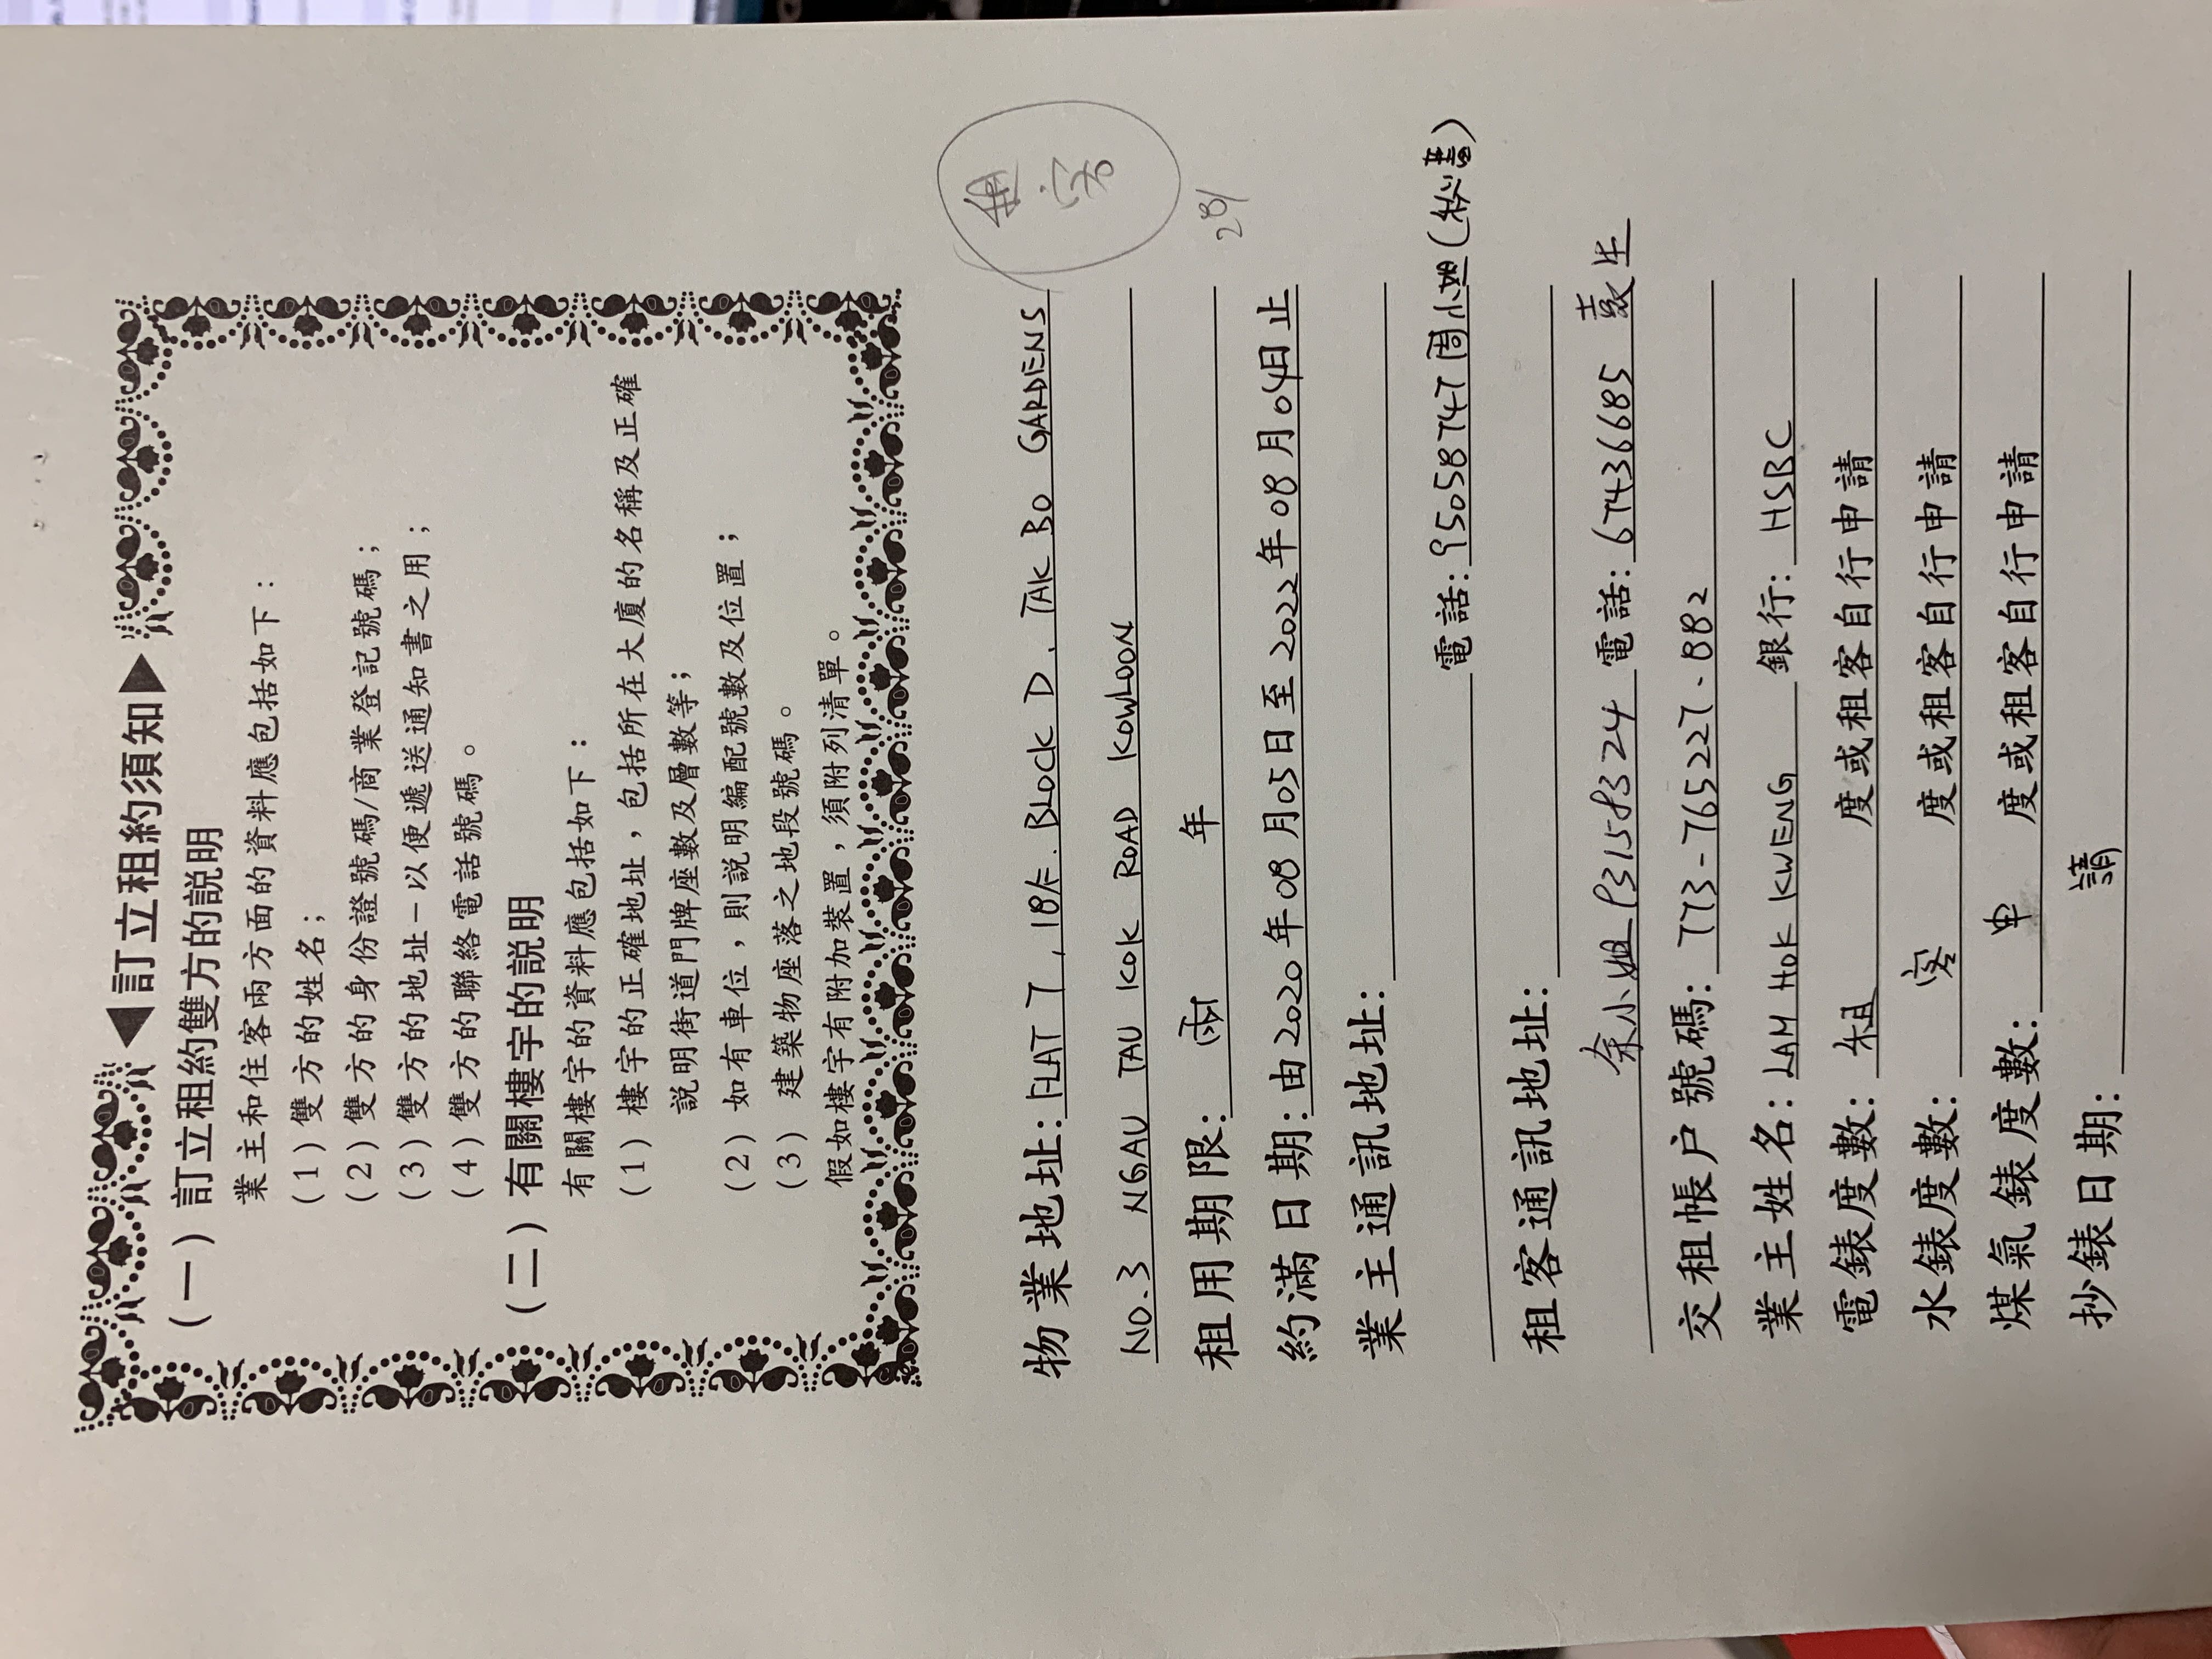 ◀訂立租約須知▶
(一) 訂立租約雙方的説明
業主和住客兩方面的資料應包括如下：
(1) 雙方的姓名；
(2) 雙方的身份證號碼/商業登記號碼；
(3) 雙方的地址－以便遞送通知書之用；
(4) 雙方的聯絡電話號碼。
(二) 有關樓宇的説明
有關樓宇的資料應包括如下：
(1) 樓宇的正確地址，包括所在大廈的名稱及正確
説明街道門牌座數及層數等；
(2) 如有車位，則説明編配號數及位置；
(3) 建築物座落之地段號碼。
假如樓宇有附加裝置，須附列清單。
租
客
物業地址: FLAT 7, 18/F. BLOCK D, TAK BO GARDENS
NO.3 NGAU TAU KOK ROAD KOWLOON
租用期限: 兩 年
約滿日期: 由2020年08月05日至2022年08月04日止
業主通訊地址:
電話: 95058747 周小姐 (秘書)
租客通訊地址:
余小姐 電話: 67436685 袁生
交租帳户號碼: 773-765227-882
業主姓名: LAM HOK KWENG 銀行: HSBC
電錶度數: 租 度或租客自行申請
水錶度數: 客 度或租客自行申請
煤氣錶度數: 申 度或租客自行申請
抄錶日期: 請